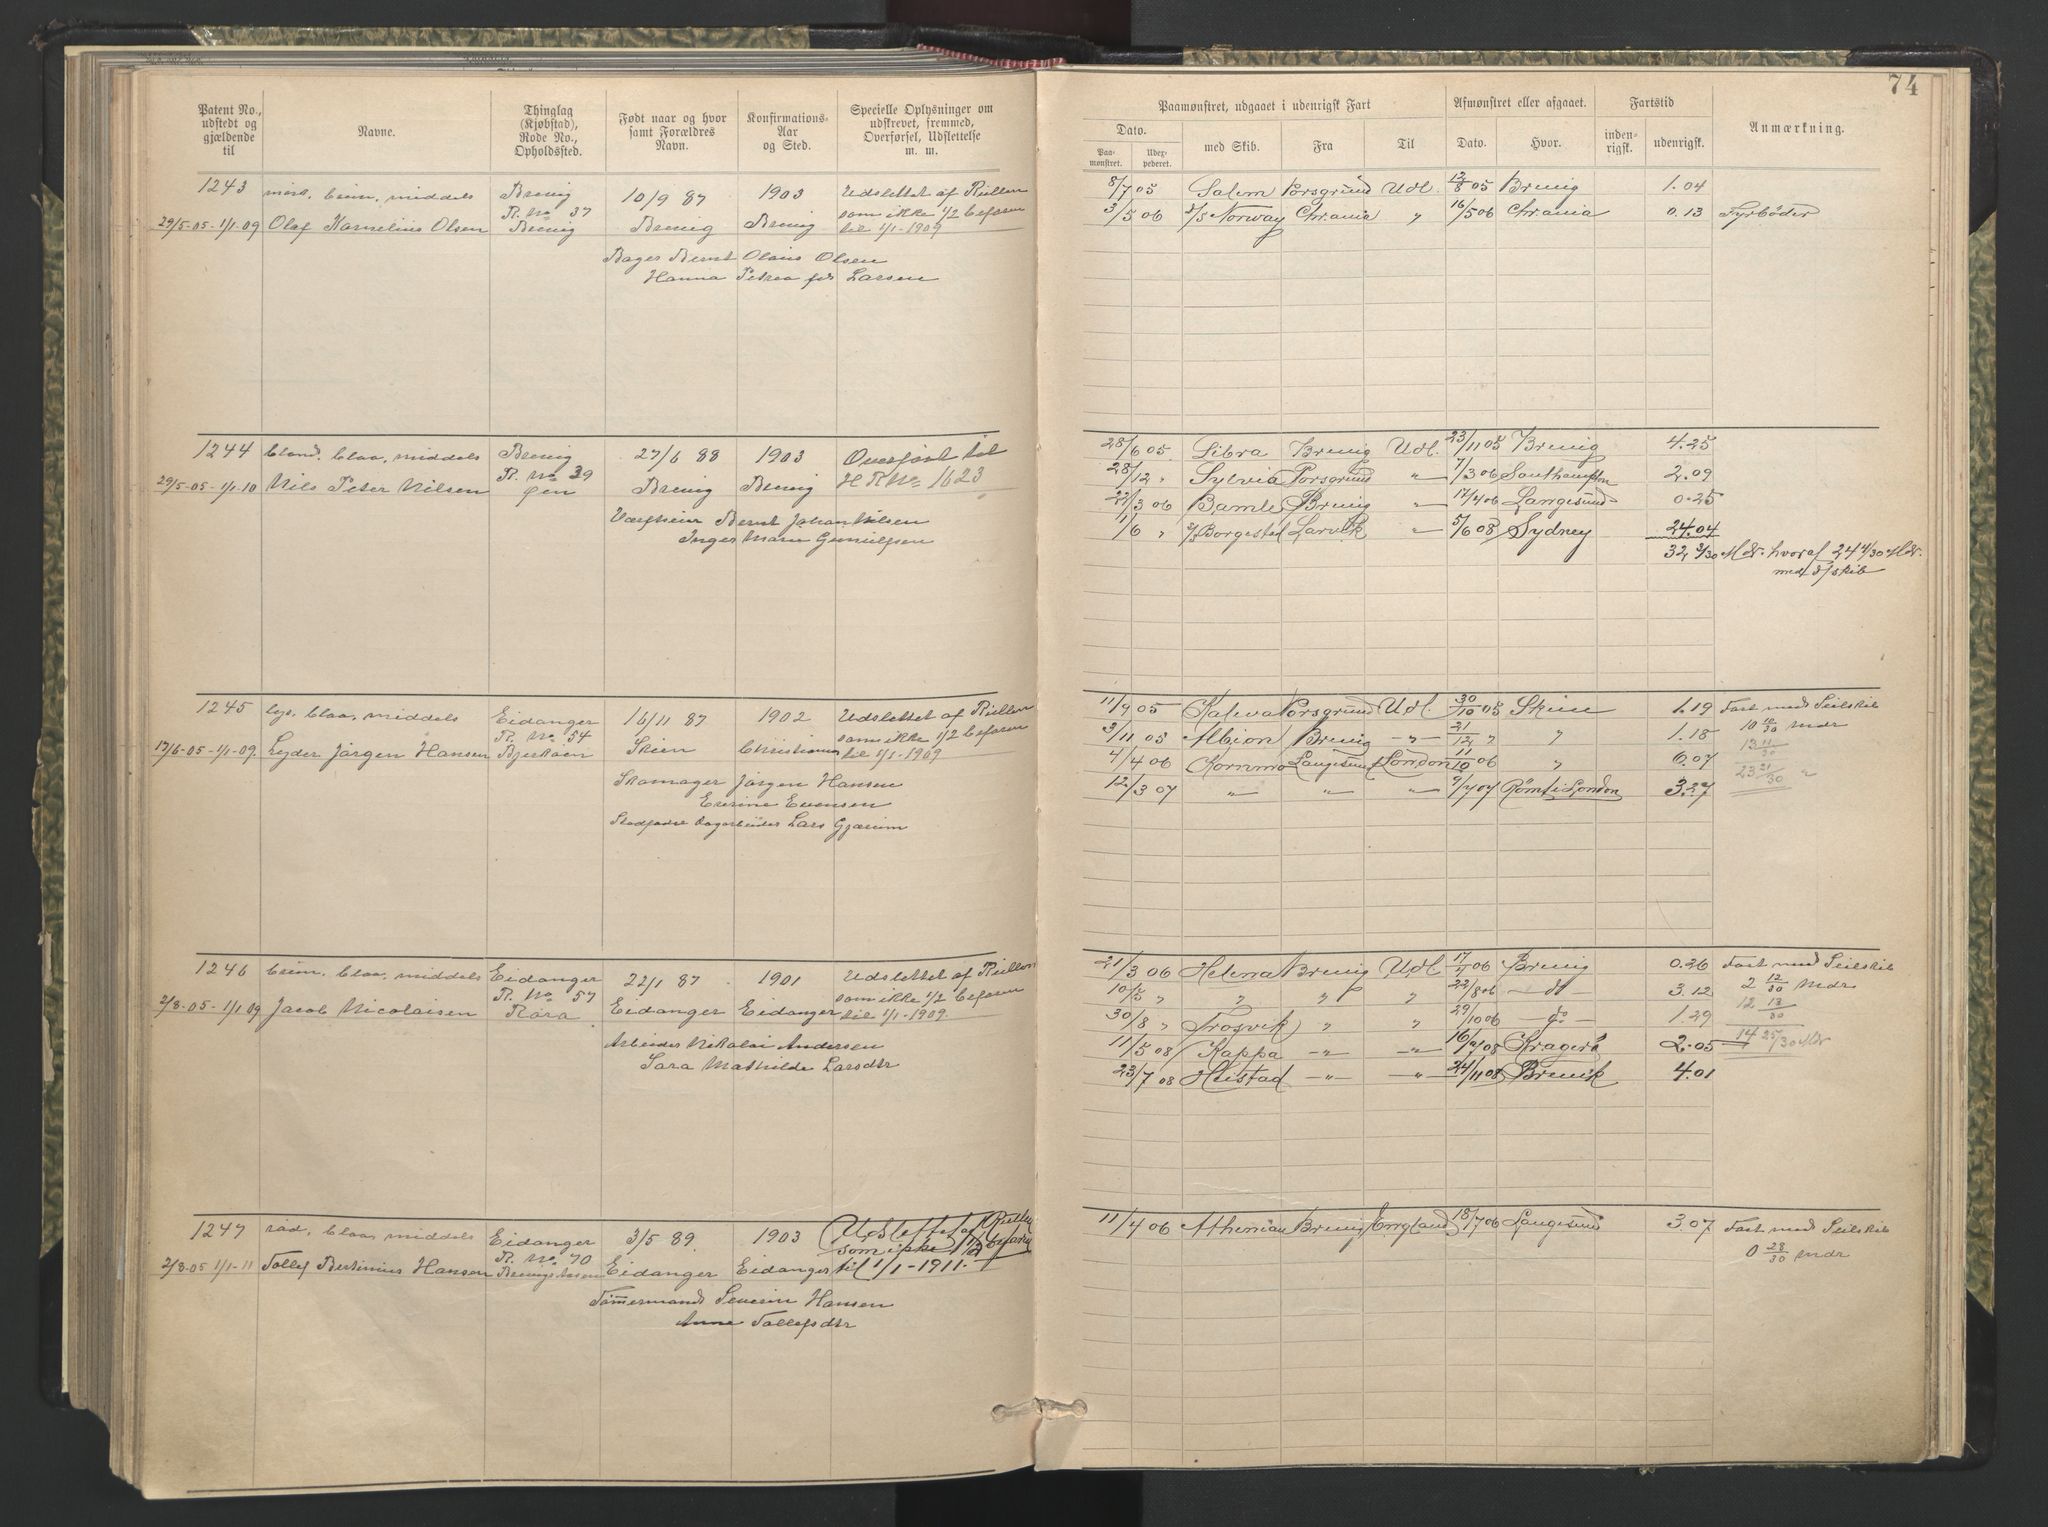 74
Patent No., udstedt og gjældende til
Navne.
Thinglag (Kjøbstad), Rode No., Opholdssted.
Født naar og hvor samt Forældres Navn.
Konfirmations-Aar og Sted.
Specielle Oplysninger om udskrevet, fremmed, Overførsel, Udslettelse m. m.
Paamønstret, udgaaet i udenrigsk Fart
Afmønstret eller afgaaet.
Fartstid
Anmærkning.
Dato.
Paa-mønstret.
Udex-pederet.
med Skib.
Fra
Til
Dato.
Hvor.
inden-rigsk.
udenrigsk.
1243 mørk, brun, middels Brevig 10/9 87 1903 Udslettet af Rullen
R. No 37 som ikke 1/2 befaren
29/5-05-1/1-09 Olaf Kornelius Olsen Brevig Brevig Brevig til 1/1-1909
Bager Bernt Olaus Olsen
Hanna Petrea født Larsen
8/7 05 Salem Porsgrund Udl. 12/8 05 Brevig 1.04
3/5 06 D/S Norway Chrania " 16/5 06 Chrania 0.13 Fyrbøder
1244 blond, blaa, middels Brevig 27/6 88 1903 Overført til
R. No 39 H R No 1623
29/5-05-1/1-10 Nils Peter Nilsen Øen Brevig Brevig
Bernt Johan Nilsen
Inger Marie
28/6 05 Libra Brevig Udl. 23/11 05 Brevig 4.25
28/12 " Sylvia Porsgrund " 7/3 06 Southampton 2.09
22/3 06 Bamle Brevig " 17/4 06 Langesund 0.25
1/6 " D/S Borgestad Larvik " 5/6 08 Sydney 24.04
32 3/30 Mdr. hvoraf 24 4/30 Mdr.
med D/skib
1245 lys, blaa, middels Eidanger 16/11 87 1902 Udslettet af Rullen
R. No 54 som ikke 1/2 befaren
17/6-05-1/1-09. Lyder Jørgen Hansen Bjerkøen Skien Christiania til 1/1-1909
Skomager Jørgen Hansen
Evensen
Stedfader Dagarbeider Lars
11/9 05 Kaleva Porsgrund Udl. 30/10 05 Skien 1.19 Fart med Seilskib
10 10/30 Mdr
3/11 05 Albion Brevig " 21/12 " " 1.18
13 11/30
4/4 06 Kornmo Langesund London 11/10 06 " 6.07
23 21/30 "
12/3 07 " " " 9/7 07 Rømt i London 3.27
1246 brun, blaa, middels Eidanger 22/1 87 1901 Udslettet af Rullen
R. No 57 som ikke 1/2 befaren
2/8-05-1/1 09 Jacob Nicolaisen Røra Eidanger Eidanger til 1/1-1909.
Arbeider Nikolai Andersen
Sara Mathilde Larsdtr
21/3 06 Helena Brevig Udl 17/4 06 Brevig 0.26 Fart med Seilskib
2 12/30 Mdr
10/5 " " " " 22/8 06 do 3.12
12 13/30
30/8 " Frosvik " " 29/10 06 do 1.29
14 25/30 Mdr
11/5 08 Kappa " " 16/7 08 Kragerø 2.05
23/7 08 Heistad " " 24/11 08 Brevik 4.01
1247 rød, blaa, middels Eidanger 3/5 89. 1903 Udslettet af Rullen
R. No 70 som ikke 1/2 befaren
2/8-05 1/1-11 Tollef Bertinius Hansen Eidanger Eidanger til 1/1-1911.
Tømmermand Severin Hansen
Anne Tollefsdtr
11/4 06 Athenian Brevig England 18/7 06 Langesund 3.07 Fart med Seilskib
0 28/30 Mdr